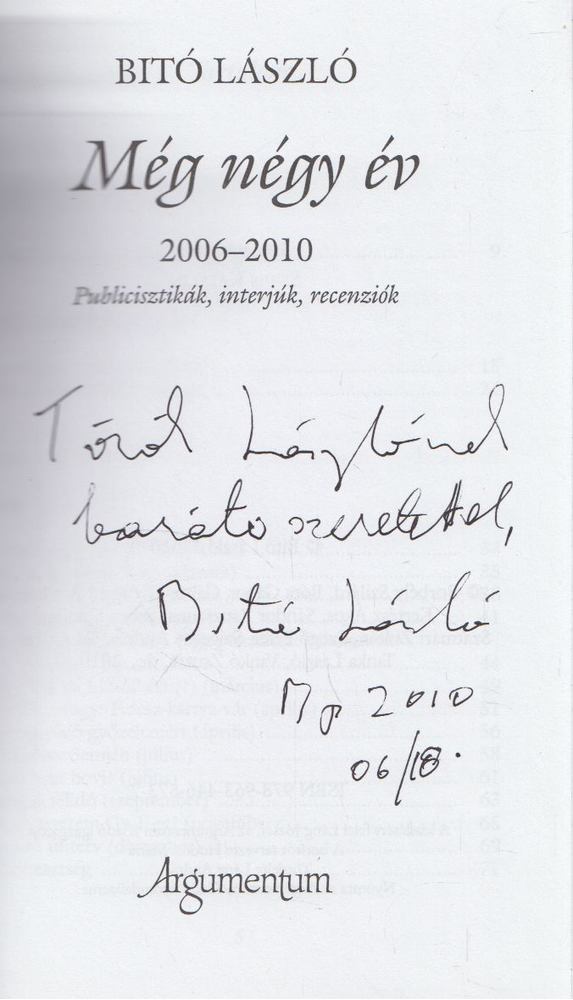 BITÓ LÁSZLÓ
Még négy év
2006–2010
Publicisztikák, interjúk, recenziók
Lászlónak
baráti szeretettel,
Bitó László
Bp 2010
06/18.
Argumentum